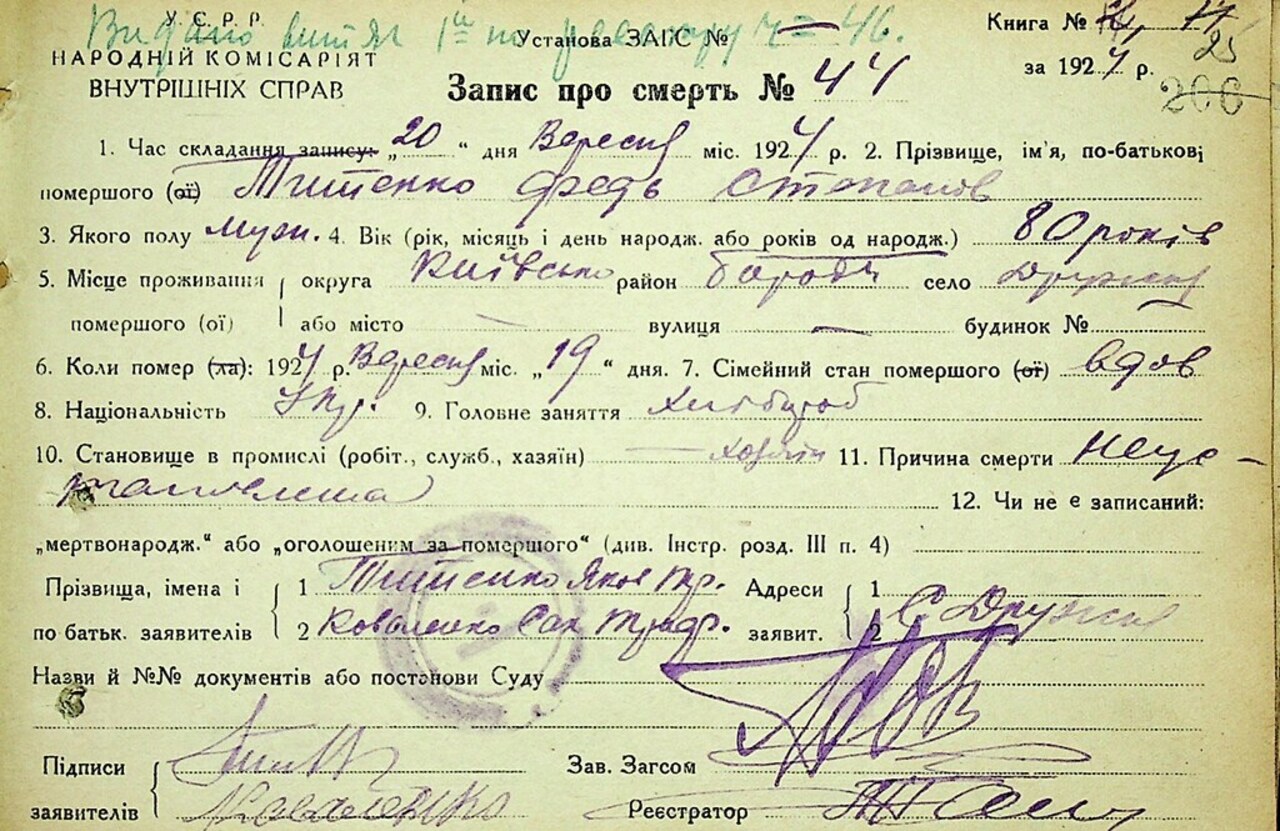 У.С.Р.Р.
НАРОДНІЙ КОМІСАРІЯТ
ВНУТРІШНІХ СПРАВ
Видано витяг 1й по реєстру Ч=46.
Установа ЗАГС № —
Запис про смерть № 44
Книга № 17
25
за 1924 р.
200
1. Час складання запису: „20“ дня Вересня міс. 1924 р. 2. Прізвище, ім'я, по-батькові
помершого (ої) Титенко Федь Степанов
3. Якого полу муж. 4. Вік (рік, місяць і день народж. або років од народж.) 80 років
5. Місце проживання округа Київсько район Бородя село Дружня
помершого (ої) або місто — вулиця — будинок №
6. Коли помер (ла): 1924 р. Вересня міс. „19“ дня. 7. Сімейний стан помершого (ої) вдов
8. Національність Укр. 9. Головне заняття Хлібороб
10. Становище в промислі (робіт., служб., хазяїн) — хозяїн 11. Причина смерти
12. Чи не є записаний:
„мертвонародж.“ або „оголошеним за помершого“ (див. Інстр. розд. III п. 4)
Прізвища, імена і 1 Титенко Яков Адреси 1 С. Дружня
по батьк. заявителів 2 Коваленко заявит. 2
Назви й №№ документів або постанови Суду
Підписи Зав. Загсом
заявителів Коваленко Реєстратор